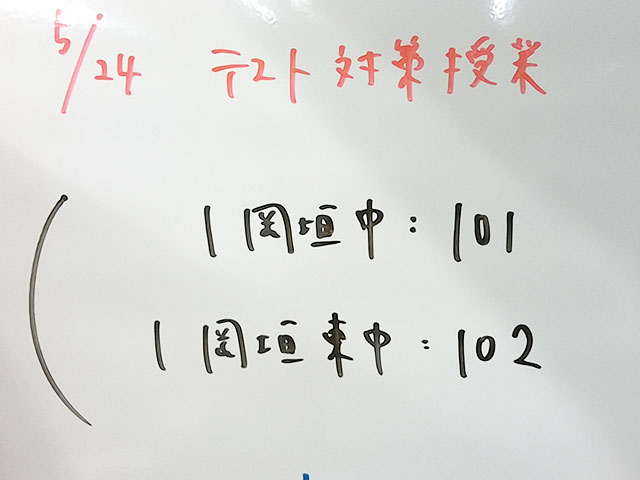 5/24 テスト対策授業
1 岡垣中：101
1 岡垣東中：102